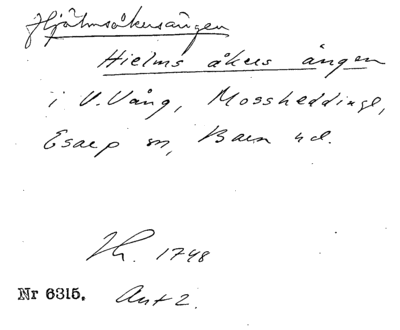 Hjälmsåkersängen
Hielms åkers ängen
i V. Vång, Mossheddinge,
Esarp sn, Bara hd.
Kh. 1748
Nr 6315. Akt 2.